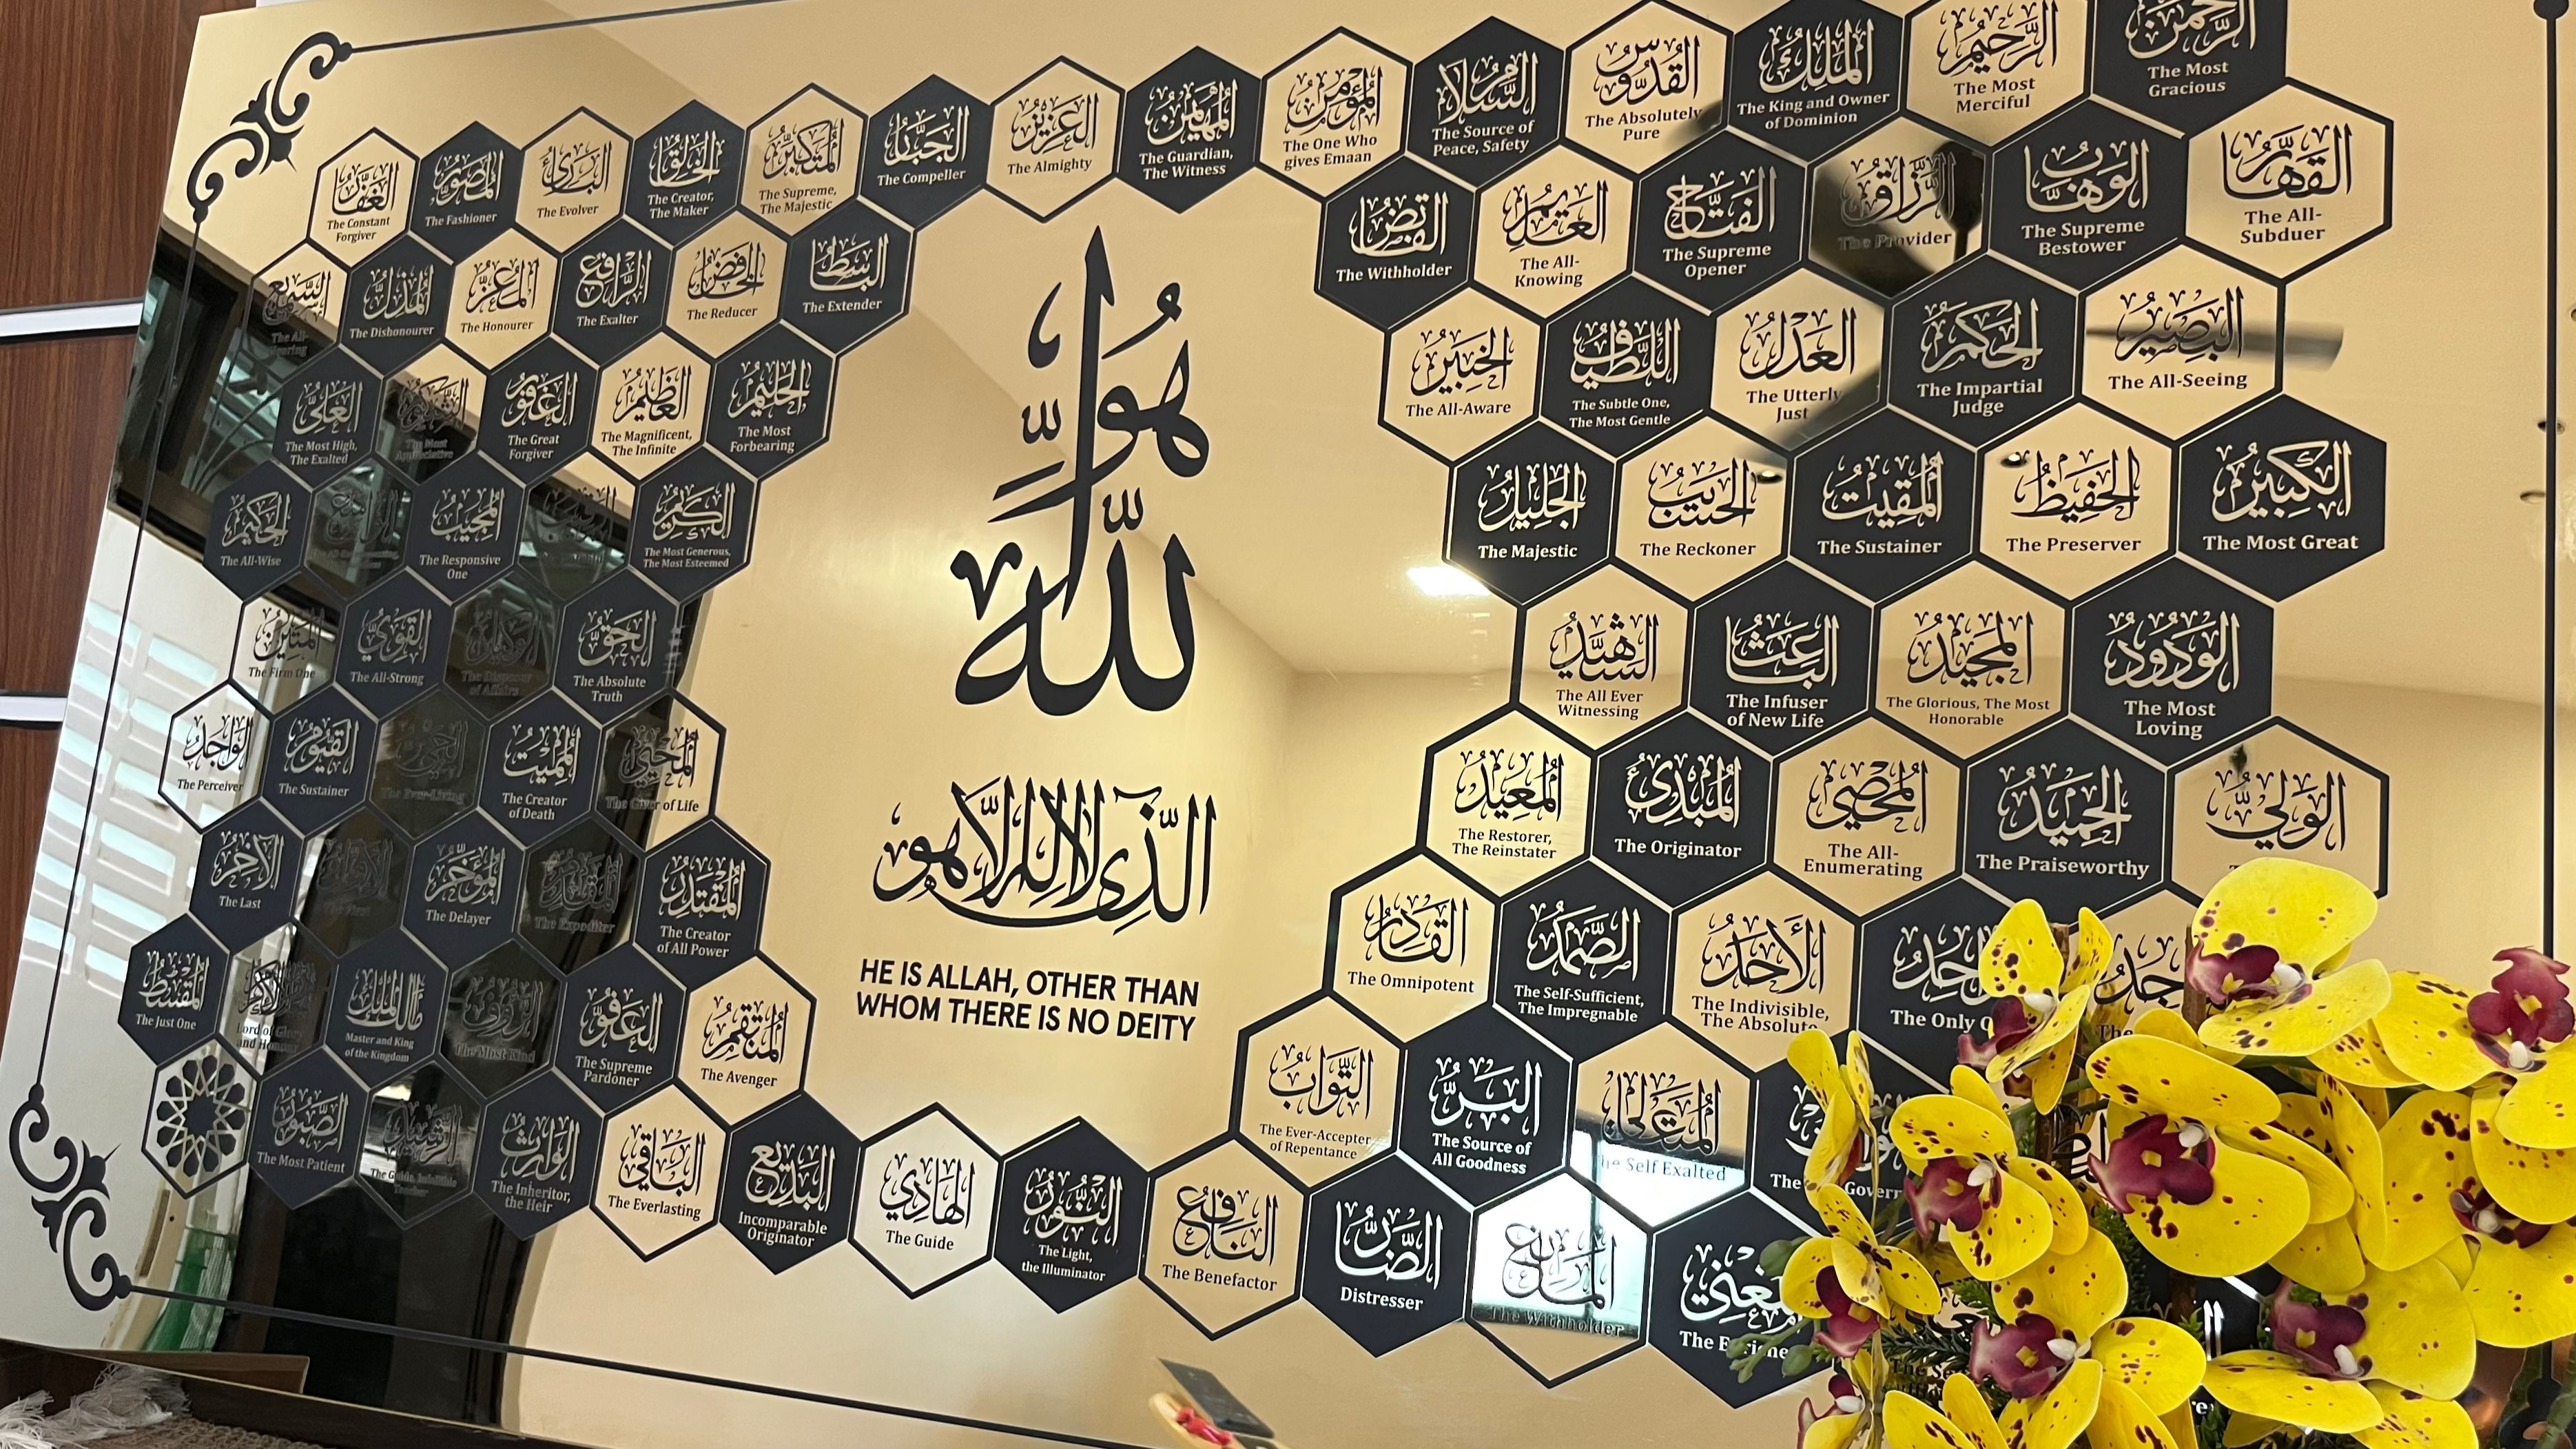 الرَّحْمٰنُ
The Most
Gracious
الرَّحِيمُ
The Most
Merciful
المَلِكُ
The King and Owner
of Dominion
القُدُّوسُ
The Absolutely
Pure
السَّلَامُ
The Source of
Peace, Safety
المُؤْمِنُ
The One Who
gives Emaan
المُهَيْمِنُ
The Guardian,
The Witness
العَزِيزُ
The Almighty
الجَبَّارُ
The Compeller
المُتَكَبِّرُ
The Supreme,
The Majestic
الخَالِقُ
The Creator,
The Maker
البَارِئُ
The Evolver
المُصَوِّرُ
The Fashioner
الغَفَّارُ
The Constant
Forgiver
القَهَّارُ
The All-
Subduer
الوَهَّابُ
The Supreme
Bestower
الرَّزَّاقُ
The Provider
الفَتَّاحُ
The Supreme
Opener
العَلِيمُ
The All-
Knowing
القَابِضُ
The Withholder
البَاسِطُ
The Extender
الخَافِضُ
The Reducer
الرَّافِعُ
The Exalter
المُعِزُّ
The Honourer
المُذِلُّ
The Dishonourer
السَّمِيعُ
The All-
Hearing
البَصِيرُ
The All-Seeing
الحَكَمُ
The Impartial
Judge
العَدْلُ
The Utterly
Just
اللَّطِيفُ
The Subtle One,
The Most Gentle
الخَبِيرُ
The All-Aware
الحَلِيمُ
The Most
Forbearing
العَظِيمُ
The Magnificent,
The Infinite
الغَفُورُ
The Great
Forgiver
الشَّكُورُ
The Most
Appreciative
العَلِيُّ
The Most High,
The Exalted
الكَبِيرُ
The Most Great
الحَفِيظُ
The Preserver
المُقِيتُ
The Sustainer
الحَسِيبُ
The Reckoner
الجَلِيلُ
The Majestic
الكَرِيمُ
The Most Generous,
The Most Esteemed
المُجِيبُ
The Responsive
One
الحَكِيمُ
The All-Wise
الوَدُودُ
The Most
Loving
المَجِيدُ
The Glorious, The Most
Honorable
البَاعِثُ
The Infuser
of New Life
الشَّهِيدُ
The All Ever
Witnessing
الحَقُّ
The Absolute
Truth
الوَكِيلُ
The Disposer
of Affairs
القَوِيُّ
The All-Strong
المَتِينُ
The Firm One
الوَلِيُّ
الحَمِيدُ
The Praiseworthy
المُحْصِي
The All-
Enumerating
المُبْدِئُ
The Originator
المُعِيدُ
The Restorer,
The Reinstater
المُحْيِي
The Giver of Life
المُمِيتُ
The Creator
of Death
الحَيُّ
The Ever-Living
القَيُّومُ
The Sustainer
الوَاجِدُ
The Perceiver
The Only
الأَحَدُ
The Indivisible,
The Absolute
الصَّمَدُ
The Self-Sufficient,
The Impregnable
القَادِرُ
The Omnipotent
المُقْتَدِرُ
The Creator
of All Power
المُقَدِّمُ
The Expediter
المُؤَخِّرُ
The Delayer
The First
الآخِرُ
The Last
The
المُتَعَالِي
The Self Exalted
البَرُّ
The Source of
All Goodness
التَّوَّابُ
The Ever-Accepter
of Repentance
المُنْتَقِمُ
The Avenger
العَفُوُّ
The Supreme
Pardoner
الرَّؤُوفُ
The Most Kind
مَالِكُ المُلْكِ
Master and King
of the Kingdom
Lord of Glory
and Honour
المُقْسِطُ
The Just One
The E
المَانِعُ
The Withholder
الضَّارُّ
Distresser
النَّافِعُ
The Benefactor
النُّورُ
The Light,
the Illuminator
الهَادِي
The Guide
البَدِيعُ
Incomparable
Originator
البَاقِي
The Everlasting
الوَارِثُ
The Inheritor,
the Heir
الرَّشِيدُ
The Guide, Infallible
Teacher
الصَّبُورُ
The Most Patient
هُوَ اللّٰهُ
الَّذِى لَا إِلٰهَ إِلَّا هُوَ
HE IS ALLAH, OTHER THAN
WHOM THERE IS NO DEITY